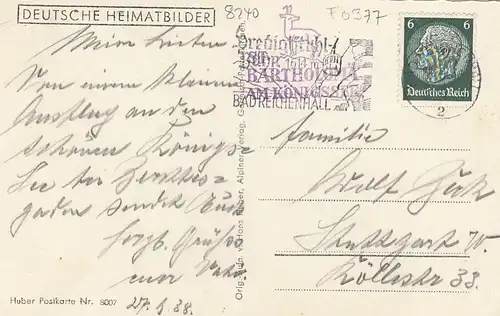 DEUTSCHE HEIMATBILDER
8240
F 0377
Predigtstuhl-
BARTHOLOMÄ
AM KÖNIGSSEE
BAD REICHENHALL
6 6
Deutsches Reich
2
Meine Lieben
Von einem kleinen
Ausflug an den
schönen Königs-
See bei Berchtes-
gaden sendet Euch
herzl. Grüße
euer Vater
27. 38.
Familie
Wolf
Stuttgart W.
Köllestr 33.
Huber Postkarte Nr. 8007